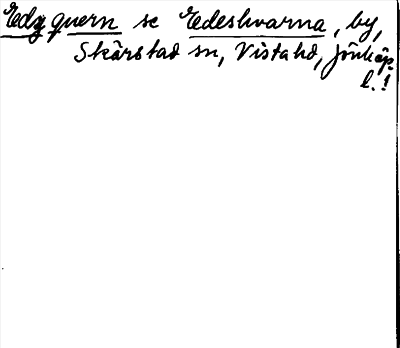 Edz quern se Edeshvarna, by,
Skärstad sn, Vista hd, Jönköp.
l.!